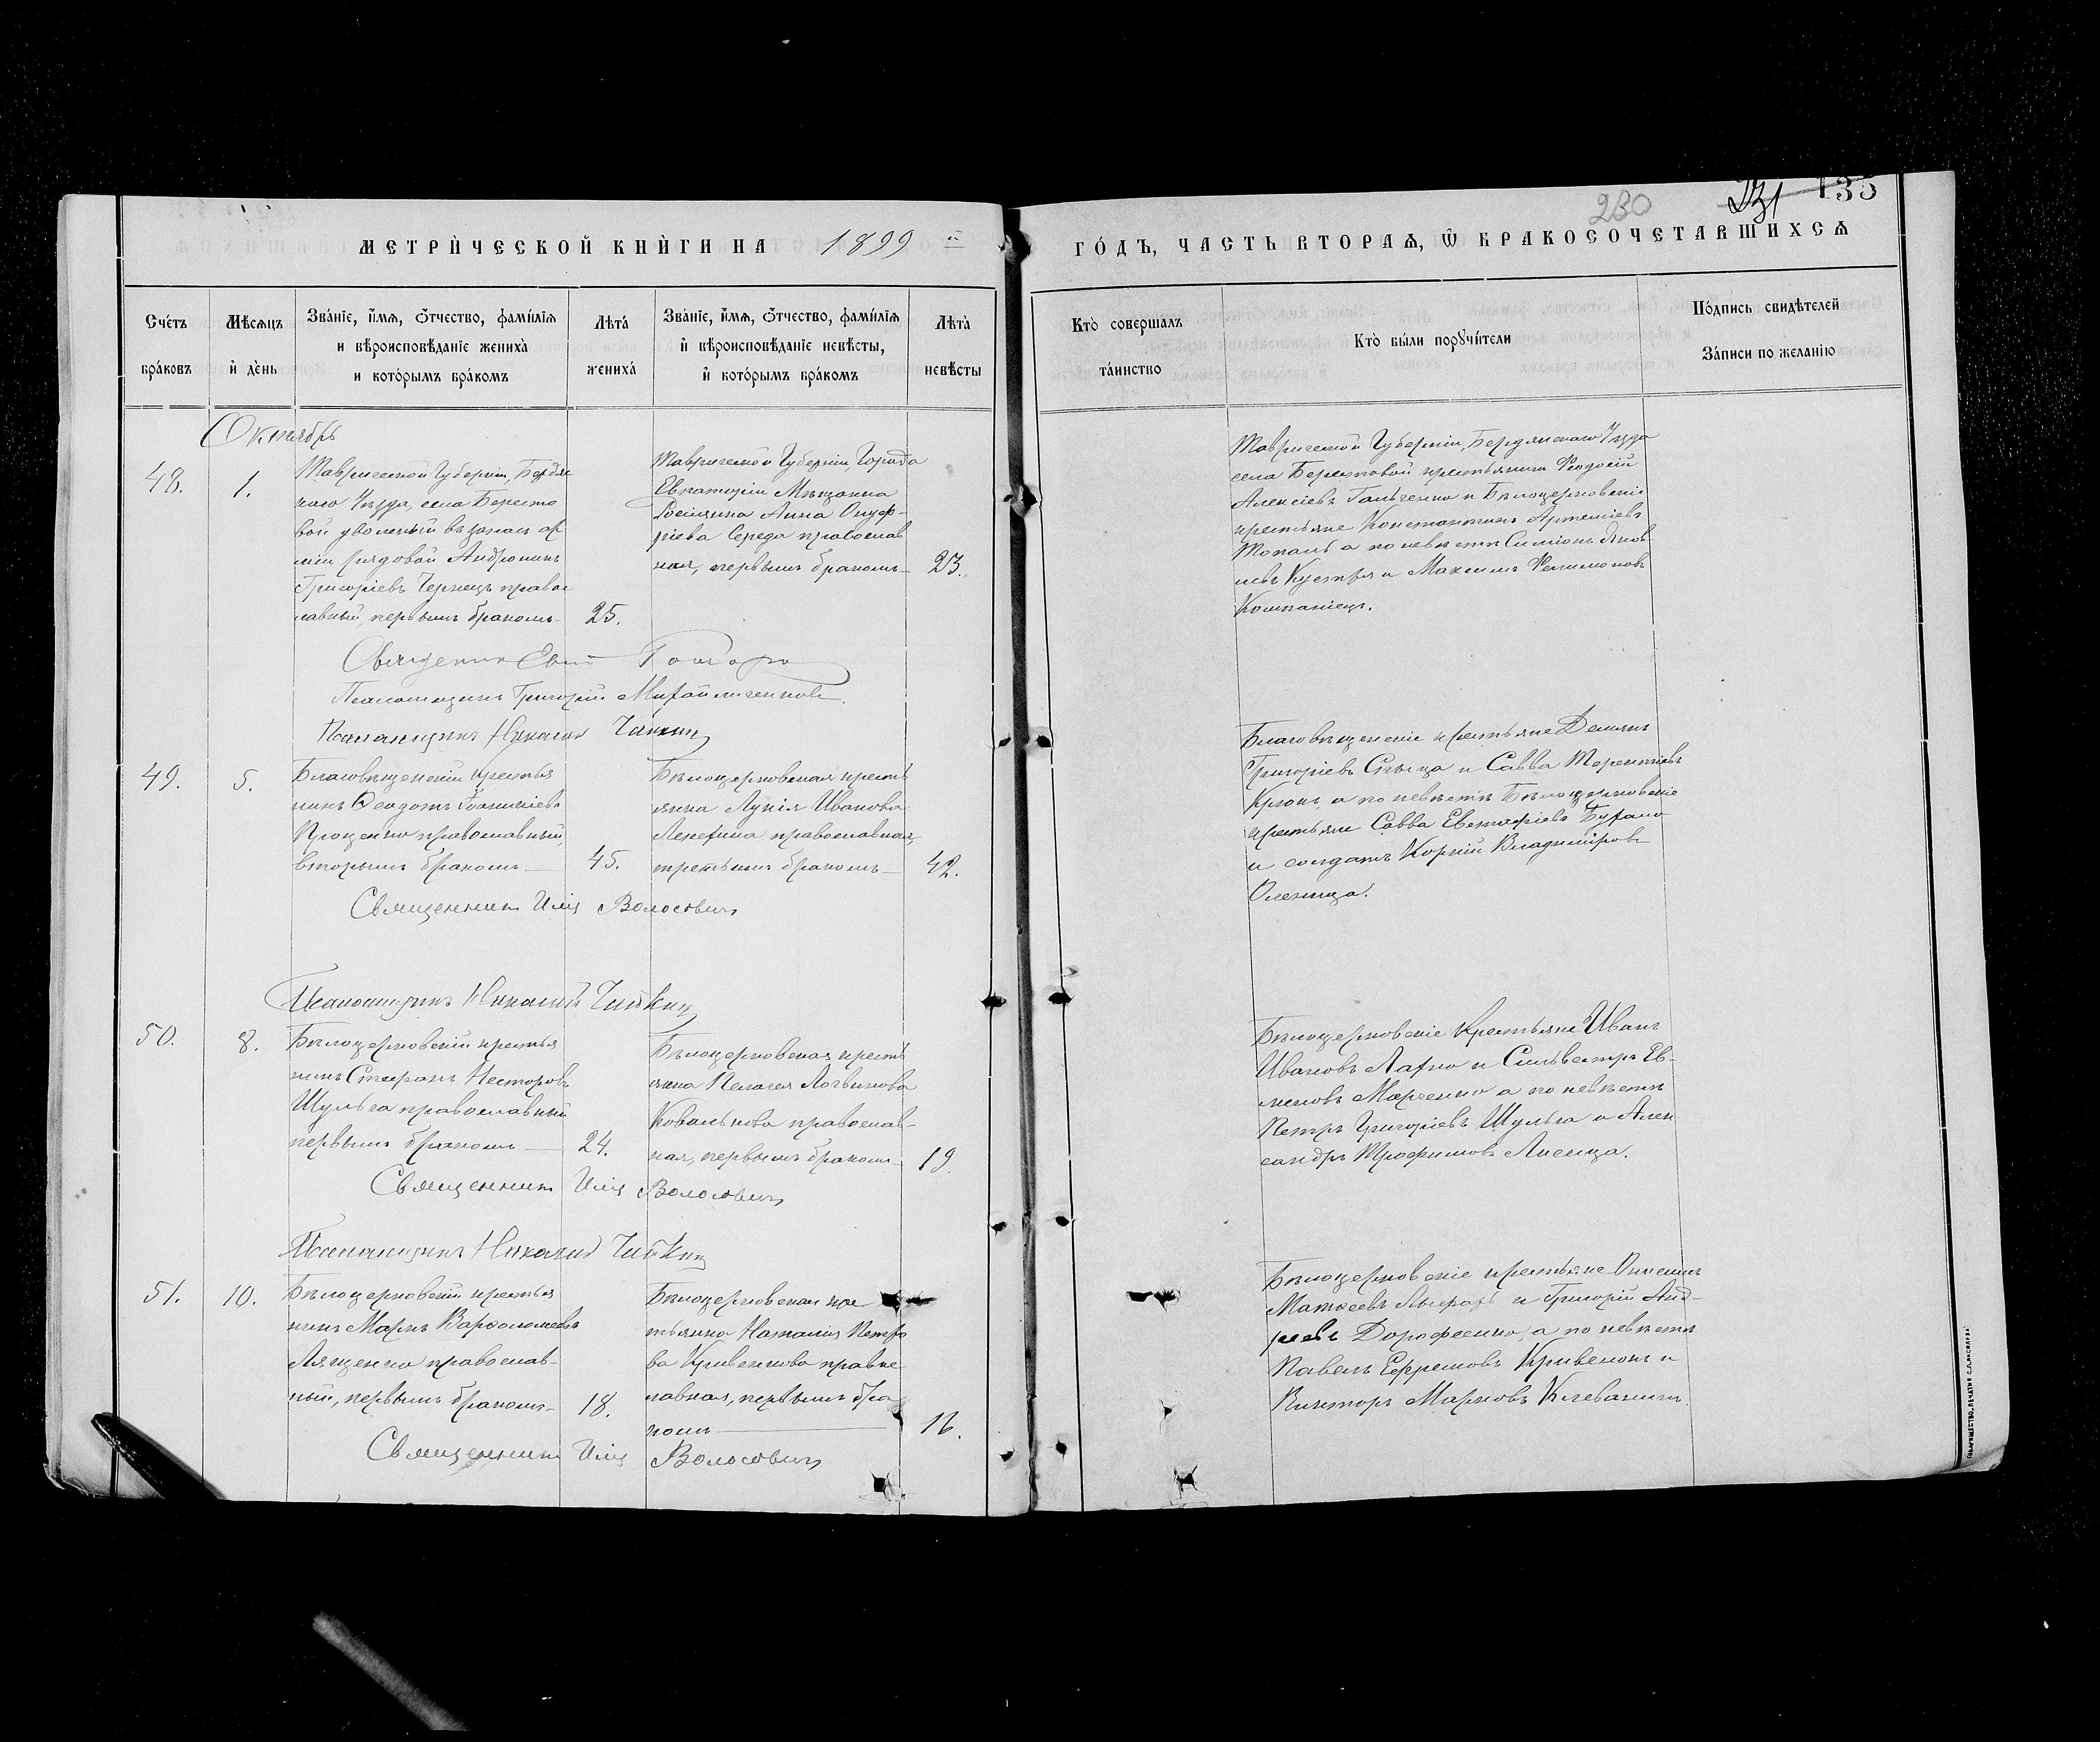 230 231 135
МЕТРИ́ЧЕСКОЙ КНИ́ГИ НА 1899 й
ГО́ДЪ, ЧАСТЬ ВТОРАѦ, Ѿ БРАКОСОЧЕТАВШИХСѦ
Сче́тъ бра́ковъ
Мѣ́сѧцъ и де́нь
Зва́нїе, и́мѧ, ѻ́тчество, фами́лїѧ и вѣроисповѣ́данїе жениха̀ и кото́рымъ бра́комъ
Лѣ́та жениха̀
Зва́нїе, и́мѧ, ѻ́тчество, фами́лїѧ и вѣроисповѣ́данїе невѣ́сты, и кото́рымъ бра́комъ
Лѣ́та невѣ́сты
Кто̀ соверша́лъ та́инство
Кто̀ бы́ли порꙋчи́тели
По́дпись свидѣ́телей за́писи по жела́нїю
Октябрь
48.
1.
Таврической Губерніи, Бердян
скаго Уѣзда, села Бересто
вой уволеный въ запасъ ар
міи рядовой Андроникъ
Григоріевъ Чернецъ правос
лавный, первымъ бракомъ
25.
Таврической Губерніи, Города
Евпаторіи Мѣщанка
Анна Онуф-
ріева Середа православ
ная, первымъ бракомъ
23.
Таврической Губерніи, Бердянскаго Уѣзда
села Берестовой крестьянинъ Феодосій
Алексіевъ Гальченко и Бѣлоцерковскіе
крестьяне Константинъ Артеміевъ
а по невѣстѣ Симіонъ
и Максимъ Филимоновъ
Компаніецъ.
Священникъ
Псаломщикъ Григорій Михайличенковъ.
Псаломщикъ Николай Чайкинъ
49.
5.
Благовѣщенскій крестья
нинъ Ѳеодотъ
Проценко православный,
вторымъ бракомъ
45.
Бѣлоцерковская кресть
янка Лукія Иванова
Лепехина православная,
третьимъ бракомъ
42.
Благовѣщенскіе крестьяне Демьянъ
Григоріевъ и Савва Терентіевъ
а по невѣстѣ Бѣлоцерковскіе
крестьяне Савва Евстафіевъ
и солдатъ Корній Владиміровъ
Священникъ Илія Волосовичъ
Псаломщикъ Николай Чайкинъ
50.
8.
Бѣлоцерковскій крестья
нинъ Стефанъ Несторовъ
Шульга православный
первымъ бракомъ
24.
Бѣлоцерковская кресть
янка Пелагея Логвинова
Ковалькова православ-
ная, первымъ бракомъ
19.
Бѣлоцерковскіе Крестьяне Иванъ
Ивановъ Лахно и Сильвестръ Ев-
Марченко а по невѣстѣ
Петръ Григоріевъ Шульга и Алек
сандръ Трофимовъ Лисица.
Священникъ Илія Волосовичъ
Псаломщикъ Николай Чайкинъ
51.
10.
Бѣлоцерковскій крестья
нинъ Маркъ Варѳоломеевъ
Лященко православ-
ный, первымъ бракомъ
18.
Бѣлоцерковская кре
стьянка Наталія Петро
ва Кривенкова правос
лавная, первымъ бра
комъ
16.
Бѣлоцерковскіе крестьяне Онисимъ
Матѳеевъ и Григорій Анд-
реевъ Дорофеенко, а по невѣстѣ
Павелъ Ефремовъ Кривенокъ и
Викторъ Марковъ
Священникъ Илія Волосовичъ